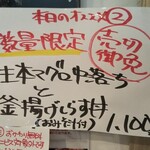 本日のオススメ②
数量限定
売切御免
生本マグロ中落ち
と
釜揚げしらす丼
(おみそ汁付) 1,100